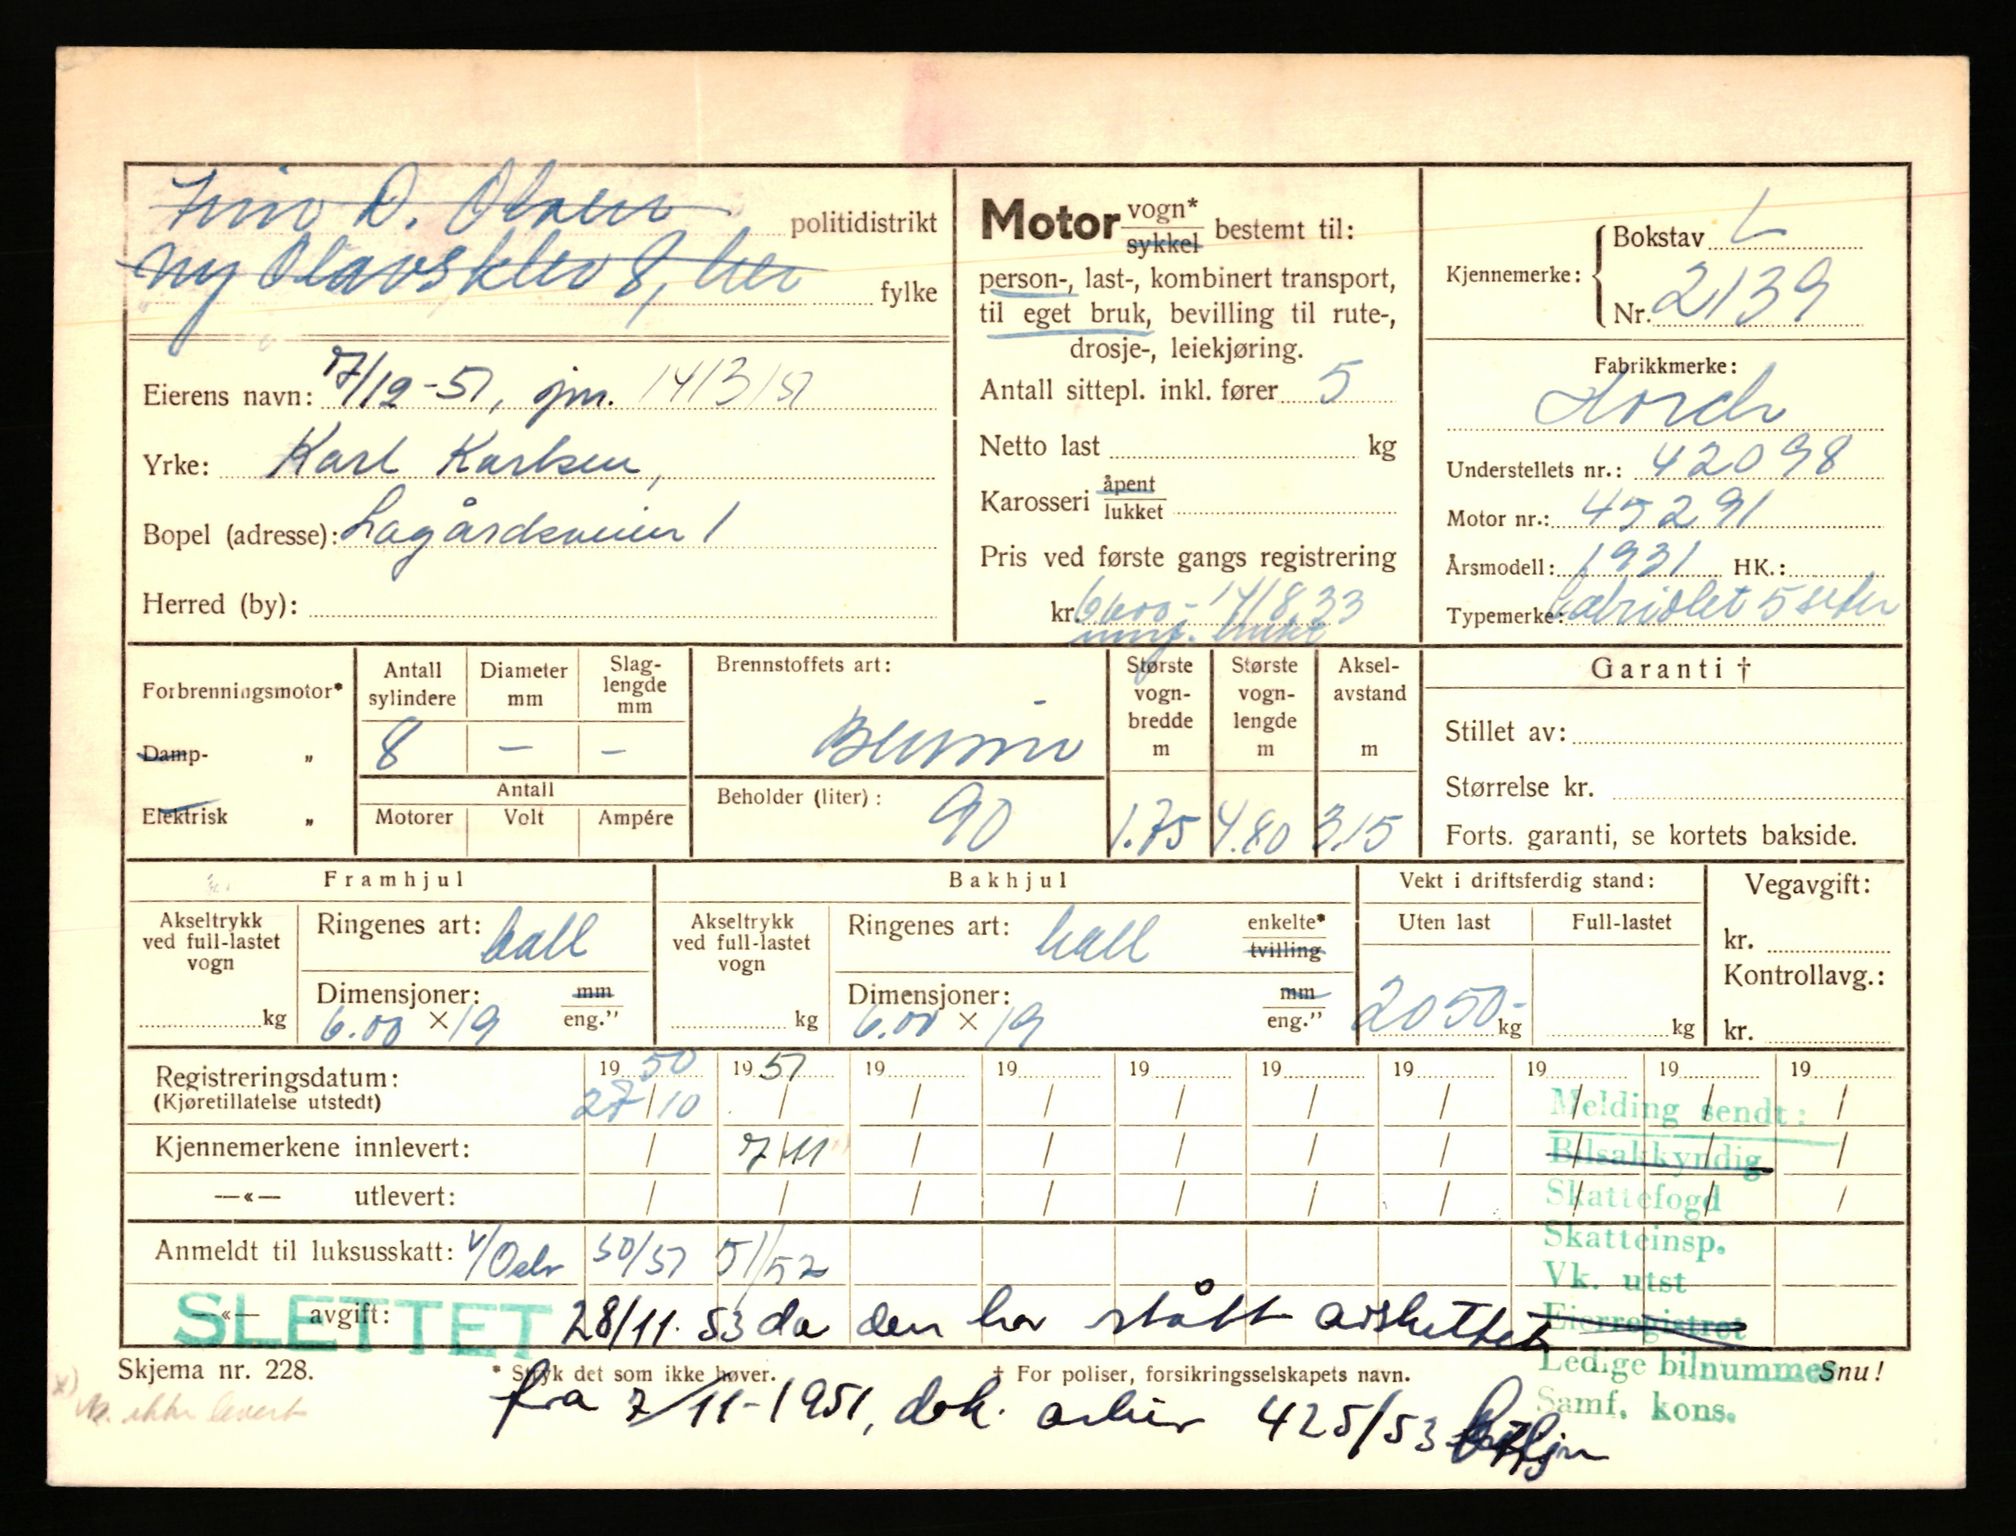 D. Olsen politidistrikt
Ny Olavsklev 8, her fylke
Eierens navn: 7/12-51, jpr. 14/3/51
Yrke: Karl Karlsen,
Bopel (adresse): Lagårdsveien 1
Herred (by):
Motor vogn* sykkel bestemt til:
person-, last-, kombinert transport,
til eget bruk, bevilling til rute-,
drosje-, leiekjøring.
Antall sittepl. inkl. fører 5
Netto last kg
Karosseri åpent lukket
Pris ved første gangs registrering
kr. 6600- 14/8.33
brukt
Kjennemerke: Bokstav L
Nr. 2139
Fabrikkmerke:
Horch
Understellets nr.: 42098
Motor nr.: 45291
Årsmodell: 1931 HK.:
Typemerke: Cabriolet 5 seter
Forbrenningsmotor*
Damp- „
Elektrisk „
Antall sylindere Diameter mm Slag-lengde mm
8 — —
Antall
Motorer Volt Ampére
Brennstoffets art:
Bensin
Beholder (liter): 90
Største vogn-bredde m Største vogn-lengde m Aksel-avstand m
1.75 4.80 3.15
Garanti †
Stillet av:
Størrelse kr.
Forts. garanti, se kortets bakside.
Framhjul
Akseltrykk ved full-lastet vogn kg
Ringenes art: ball
Dimensjoner: mm
6.00 × 19 eng.”
Bakhjul
Akseltrykk ved full-lastet vogn kg
Ringenes art: ball enkelte* tvilling
Dimensjoner: mm
6.00 × 19 eng.”
Vekt i driftsferdig stand:
Uten last Full-lastet
2050- kg kg
Vegavgift:
kr.
Kontrollavg.:
kr.
Registreringsdatum: 19 50 19 51 19 19 19 19 19 19 19 19
(Kjøretillatelse utstedt) 27/10 / / / / / / / / /
Kjennemerkene innlevert: / 7/11 / / / / / / / /
—«— utlevert: / / / / / / / / / /
Anmeldt til luksusskatt: 50/51 51/52
—«— avgift: 28/11.53 da den har stått avskiltet
SLETTET
Melding sendt:
Bilsakkyndig
Skattefogd
Skatteinsp.
Vk. utst
Eierregistret
Ledige bilnummer
Samf. kons.
Skjema nr. 228. * Stryk det som ikke høver. † For poliser, forsikringsselskapets navn. Snu!
x)
ikke levert
fra 7/11-1951, dok. arkiv 425/53